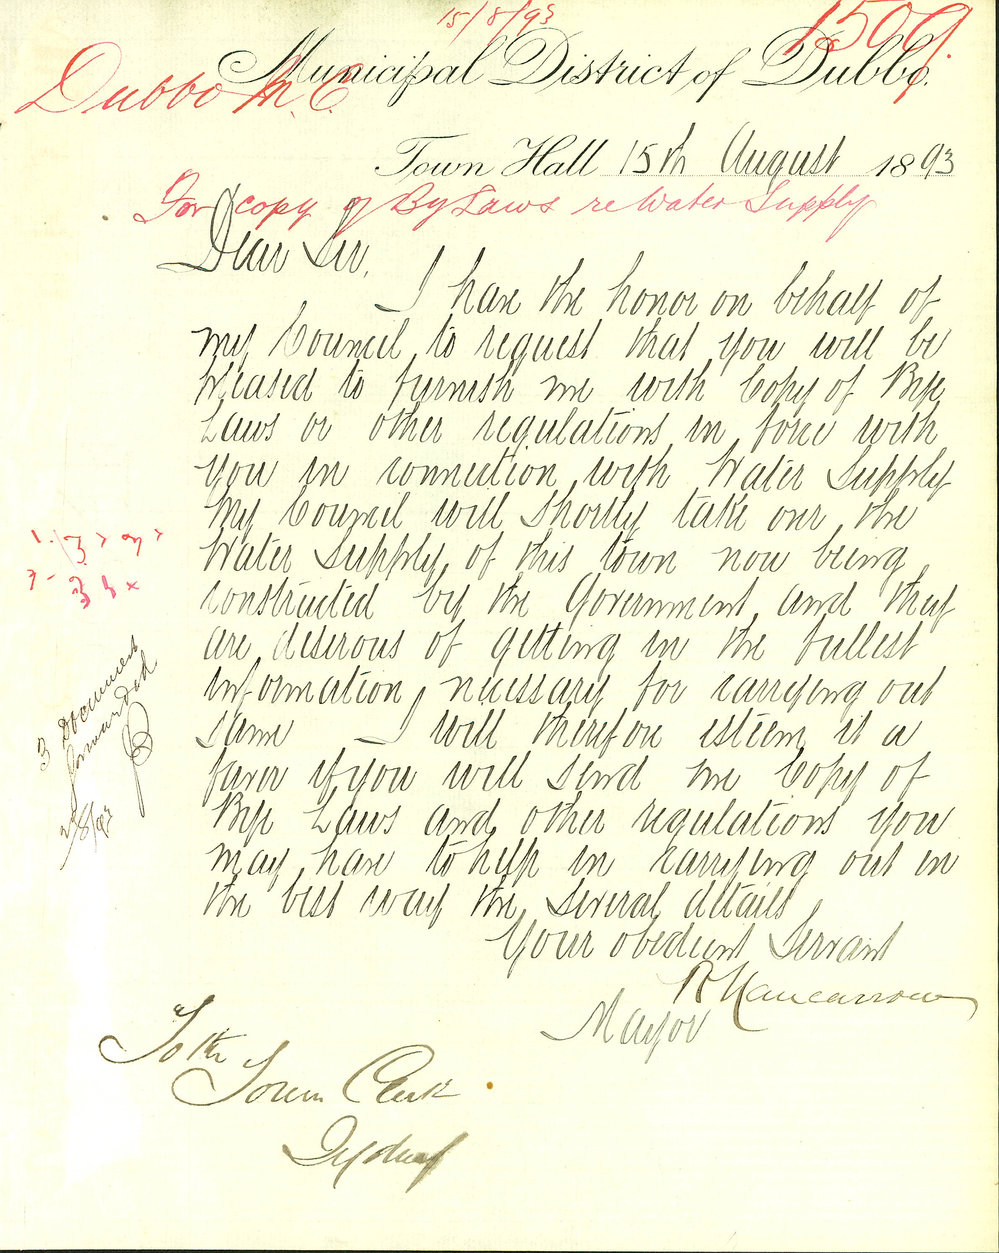 15/8/93
1509
Municipal District of Dubbo.
Dubbo M.C.
Town Hall 15th August 1893
For copy of By Laws re Water Supply
Dear Sir,
I have the honor on behalf of
my Council to request that you will be
pleased to furnish me with Copy of Bye
Laws or other regulations in force with
you in connection with Water Supply
My Council will shortly take over the
Water Supply of this town now being
constructed by the Government and they
are desirous of getting in the fullest
information necessary for carrying out
same I will therefore esteem it a
favor if you will send me Copy of
Bye Laws and other regulations you
may have to help in carrying out in
the best way the several details
Your obedient Servant
R Hancarrow
Mayor
3 Documents
forwarded
To the
Town Clerk
Sydney